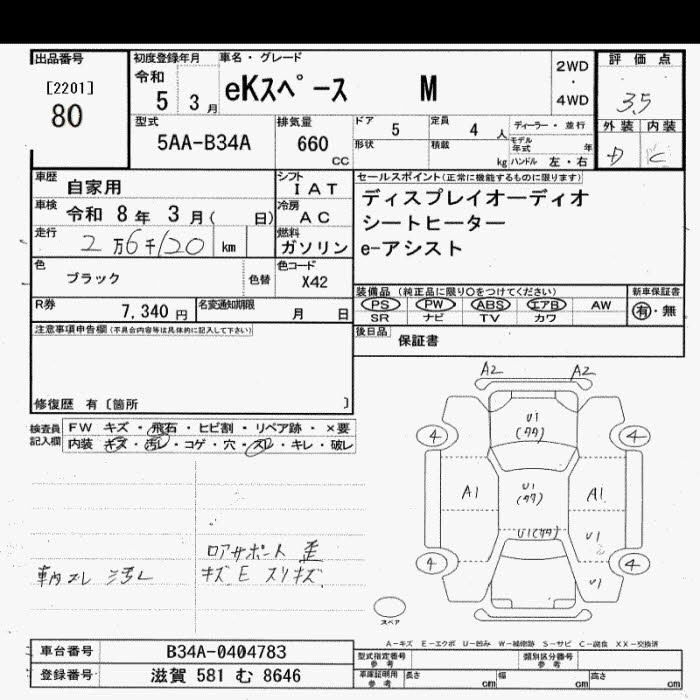 出品番号
[2201]
80
初度登録年月
令和
5 3月
車名・グレード
eKスペース M
2WD
・
4WD
評価点
3.5
外装 内装
D C
型式
5AA-B34A
排気量
660
CC
ドア 5
定員 4 人
ディーラー・並行
形状
積載 kg
モデル年式 年
ハンドル 左・右
車歴
自家用
車検
令和 8年 3月( 日)
走行
2万6千120 km
シフト
IAT
冷房
AC
燃料
ガソリン
セールスポイント(正常に機能するものに限ります)
ディスプレイオーディオ
シートヒーター
e-アシスト
色
ブラック
色替
色コード
X42
R券
7,340 円
名変通知期限
月 日
装備品 (純正品に限り○をつけてください)
PS PW ABS エアB AW
SR ナビ TV カワ
新車保証書
有・無
後日品
保証書
注意事項申告欄(不具合内容等は具体的に記入して下さい)
修復歴 有〔箇所 〕
検査員記入欄
FW キズ・飛石・ヒビ割・リペア跡・×要
内装 キズ・汚レ・コゲ・穴・スレ・キレ・破レ
A2 A2
U1
(タタ)
4 4
A1
U1
(タタ)
A1
U1(タタ)
U1
4 4
U1
スペア
車内スレ 汚レ
ロアサポート 歪
キズ E スリキズ
A-キズ E-エクボ U-凹み W-補修跡 S-サビ C-腐食 XX-交換済
車台番号
B34A-0404783
登録番号
滋賀 581 む 8646
型式指定番号
参考
類別区分番号
参考
車庫証明用
参考
長さ cm
幅 cm
高さ cm